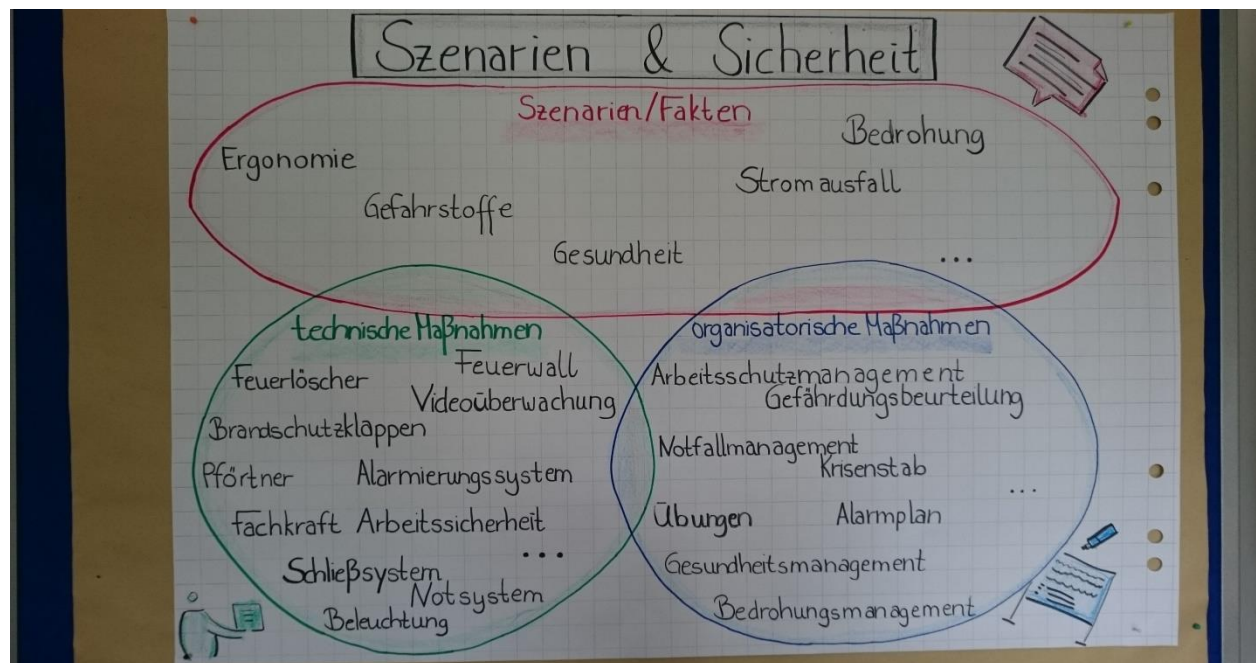 Szenarien & Sicherheit
Szenarien/Fakten
Bedrohung
Ergonomie
Stromausfall
Gefahrstoffe
Gesundheit
...
technische Maßnahmen
Feuerwall
Feuerlöscher
Videoüberwachung
Brandschutzklappen
Pförtner
Alarmierungssystem
Fachkraft Arbeitssicherheit
...
Schließsystem
Notsystem
Beleuchtung
organisatorische Maßnahmen
Arbeitsschutzmanagement
Gefährdungsbeurteilung
Notfallmanagement
Krisenstab
...
Übungen
Alarmplan
Gesundheitsmanagement
Bedrohungsmanagement